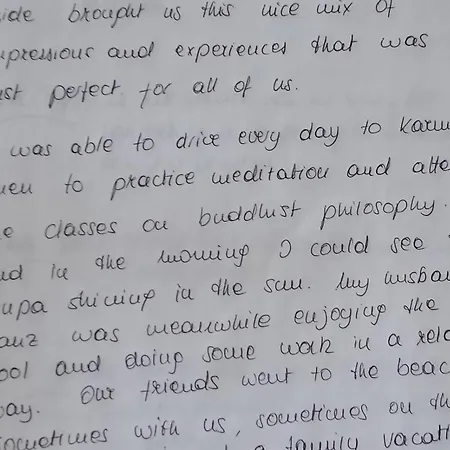 ide brought us this nice mix of
pressions and experiences that was
st perfect for all of us.
was able to drive every day to Karm
ueu to practice meditation and atte
e classes on buddhist philosophy.
ud in the morning I could see
upa shining in the sun. My husba
auz was meanwhile enjoying the
ool and doing some work in a rela
way. Our friends went to the beac
ometimes with us, sometimes on th
family vacat